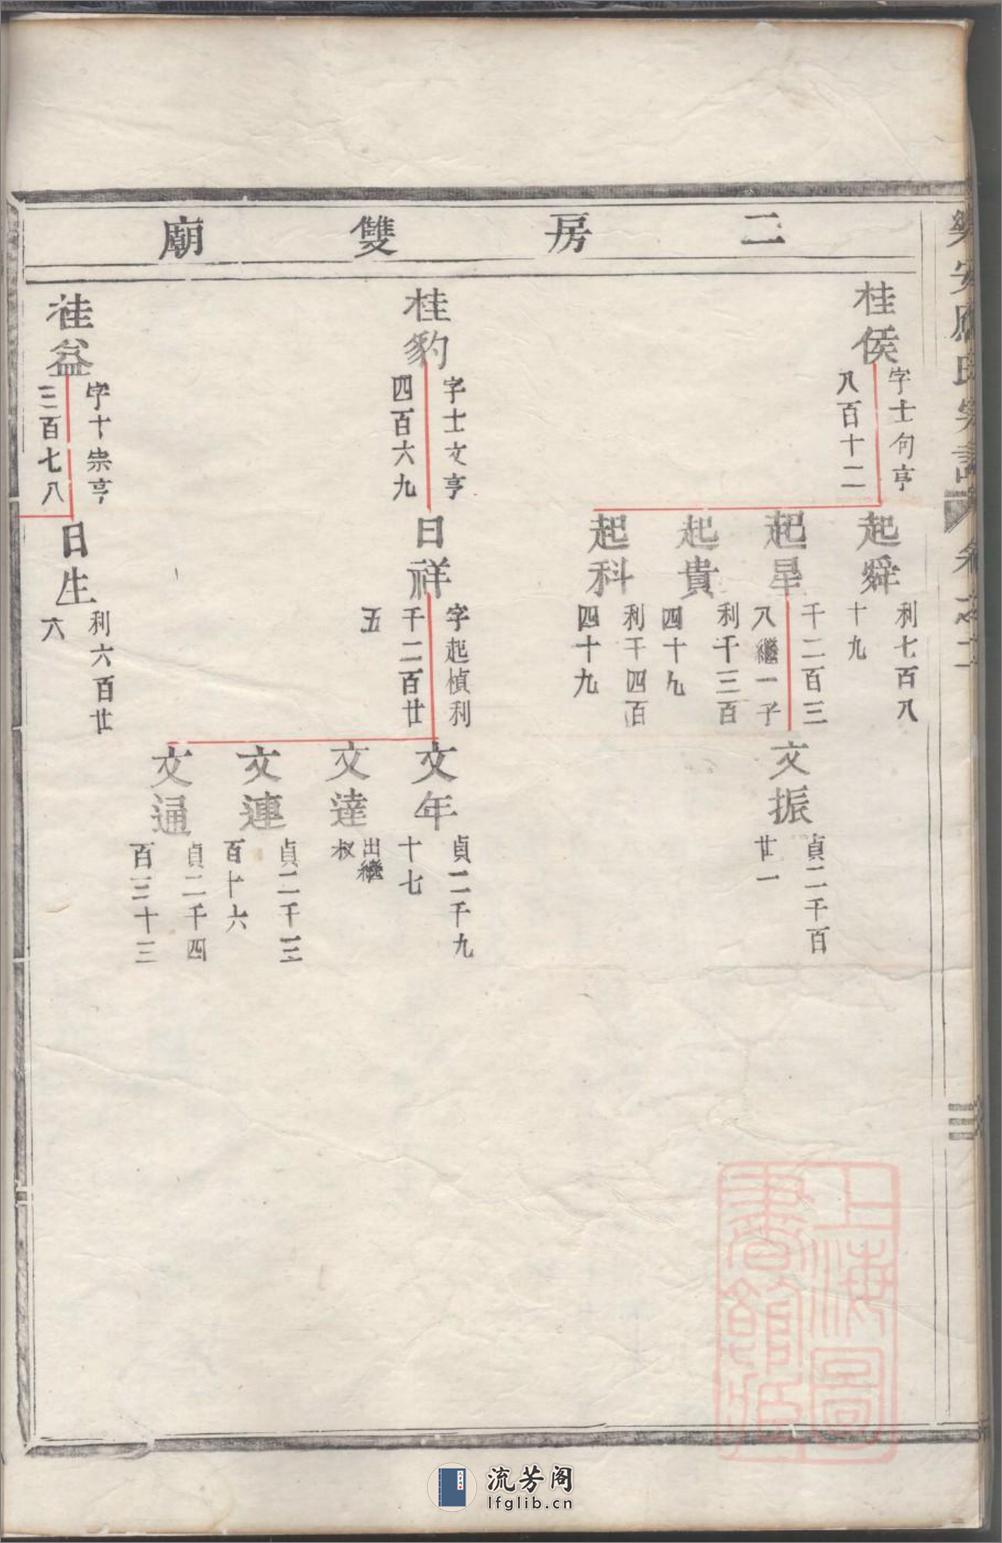 二房雙廟
桂侯
字士句亨
八百十二
起舜
利七百八
十九
起星
千二百三
八繼一子
文振
貞二千百
廿一
起貴
利千三百
四十九
起科
利千四百
四十九
桂豹
字士文亨
四百六九
日祥
字起楨利
千二百廿
五
文年
貞二千九
十七
文達
出繼
叔
文連
貞二千三
百十六
文通
貞二千四
百三十三
桂益
字十崇亨
三百七八
日生
利六百廿
六
三
上海圖
書館藏
流芳阁
lfglib.cn